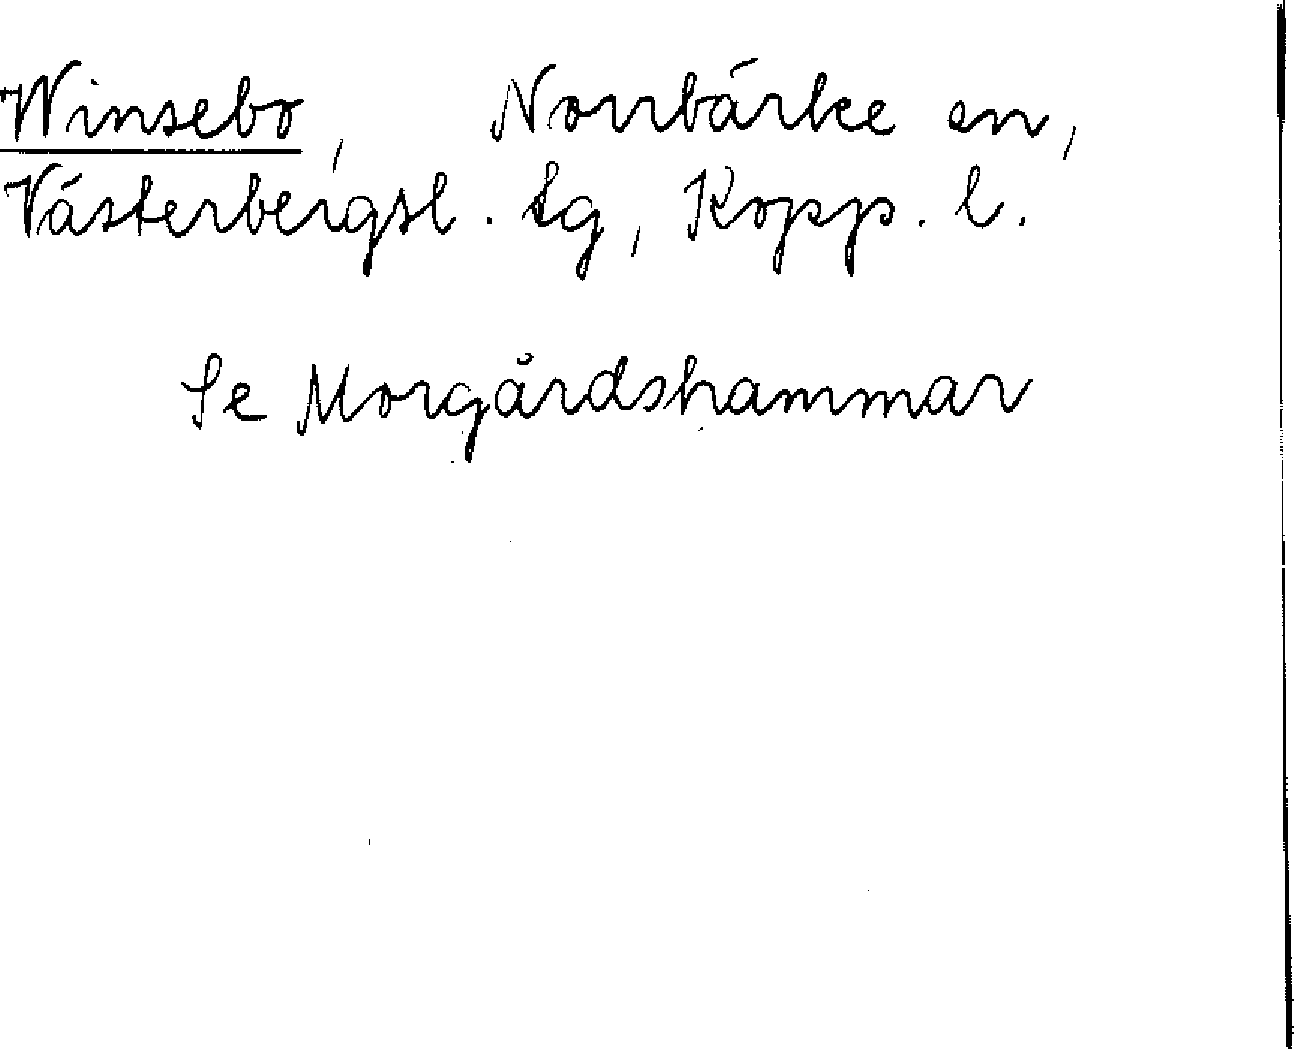 Winsebo, Norrbärke sn,
Västerbergsl. tg, Kopp. l.
Se Morgårdshammar